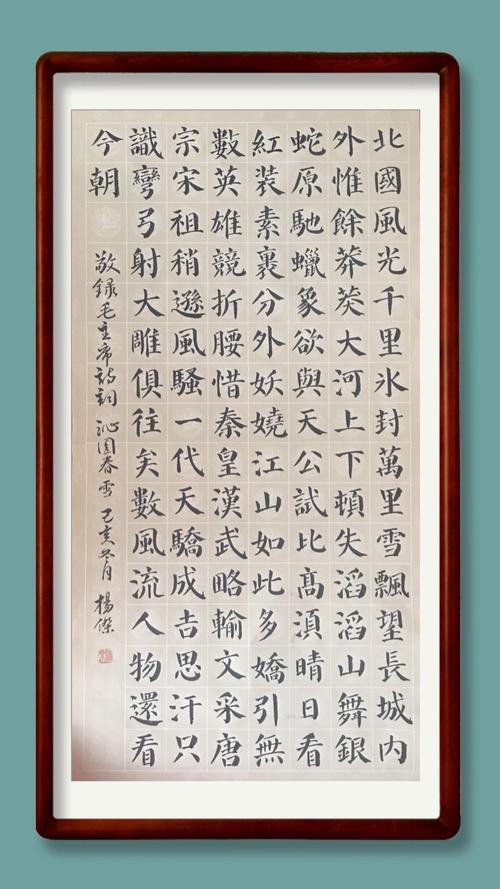 北國風光千里氷封萬里雪飄望長城内
外惟餘莽莽大河上下頓失滔滔山舞銀
蛇原馳蠟象欲與天公試比髙湏晴日看
紅装素裹分外妖嬈江山如此多嬌引無
數英雄競折腰惜秦皇漢武略輸文采唐
宗宋祖稍遜風騷一代天驕成吉思汗只
識彎弓射大雕俱往矣數風流人物還看
今朝
敬録毛主席詩詞 沁园春雪 己亥冬月 楊傑